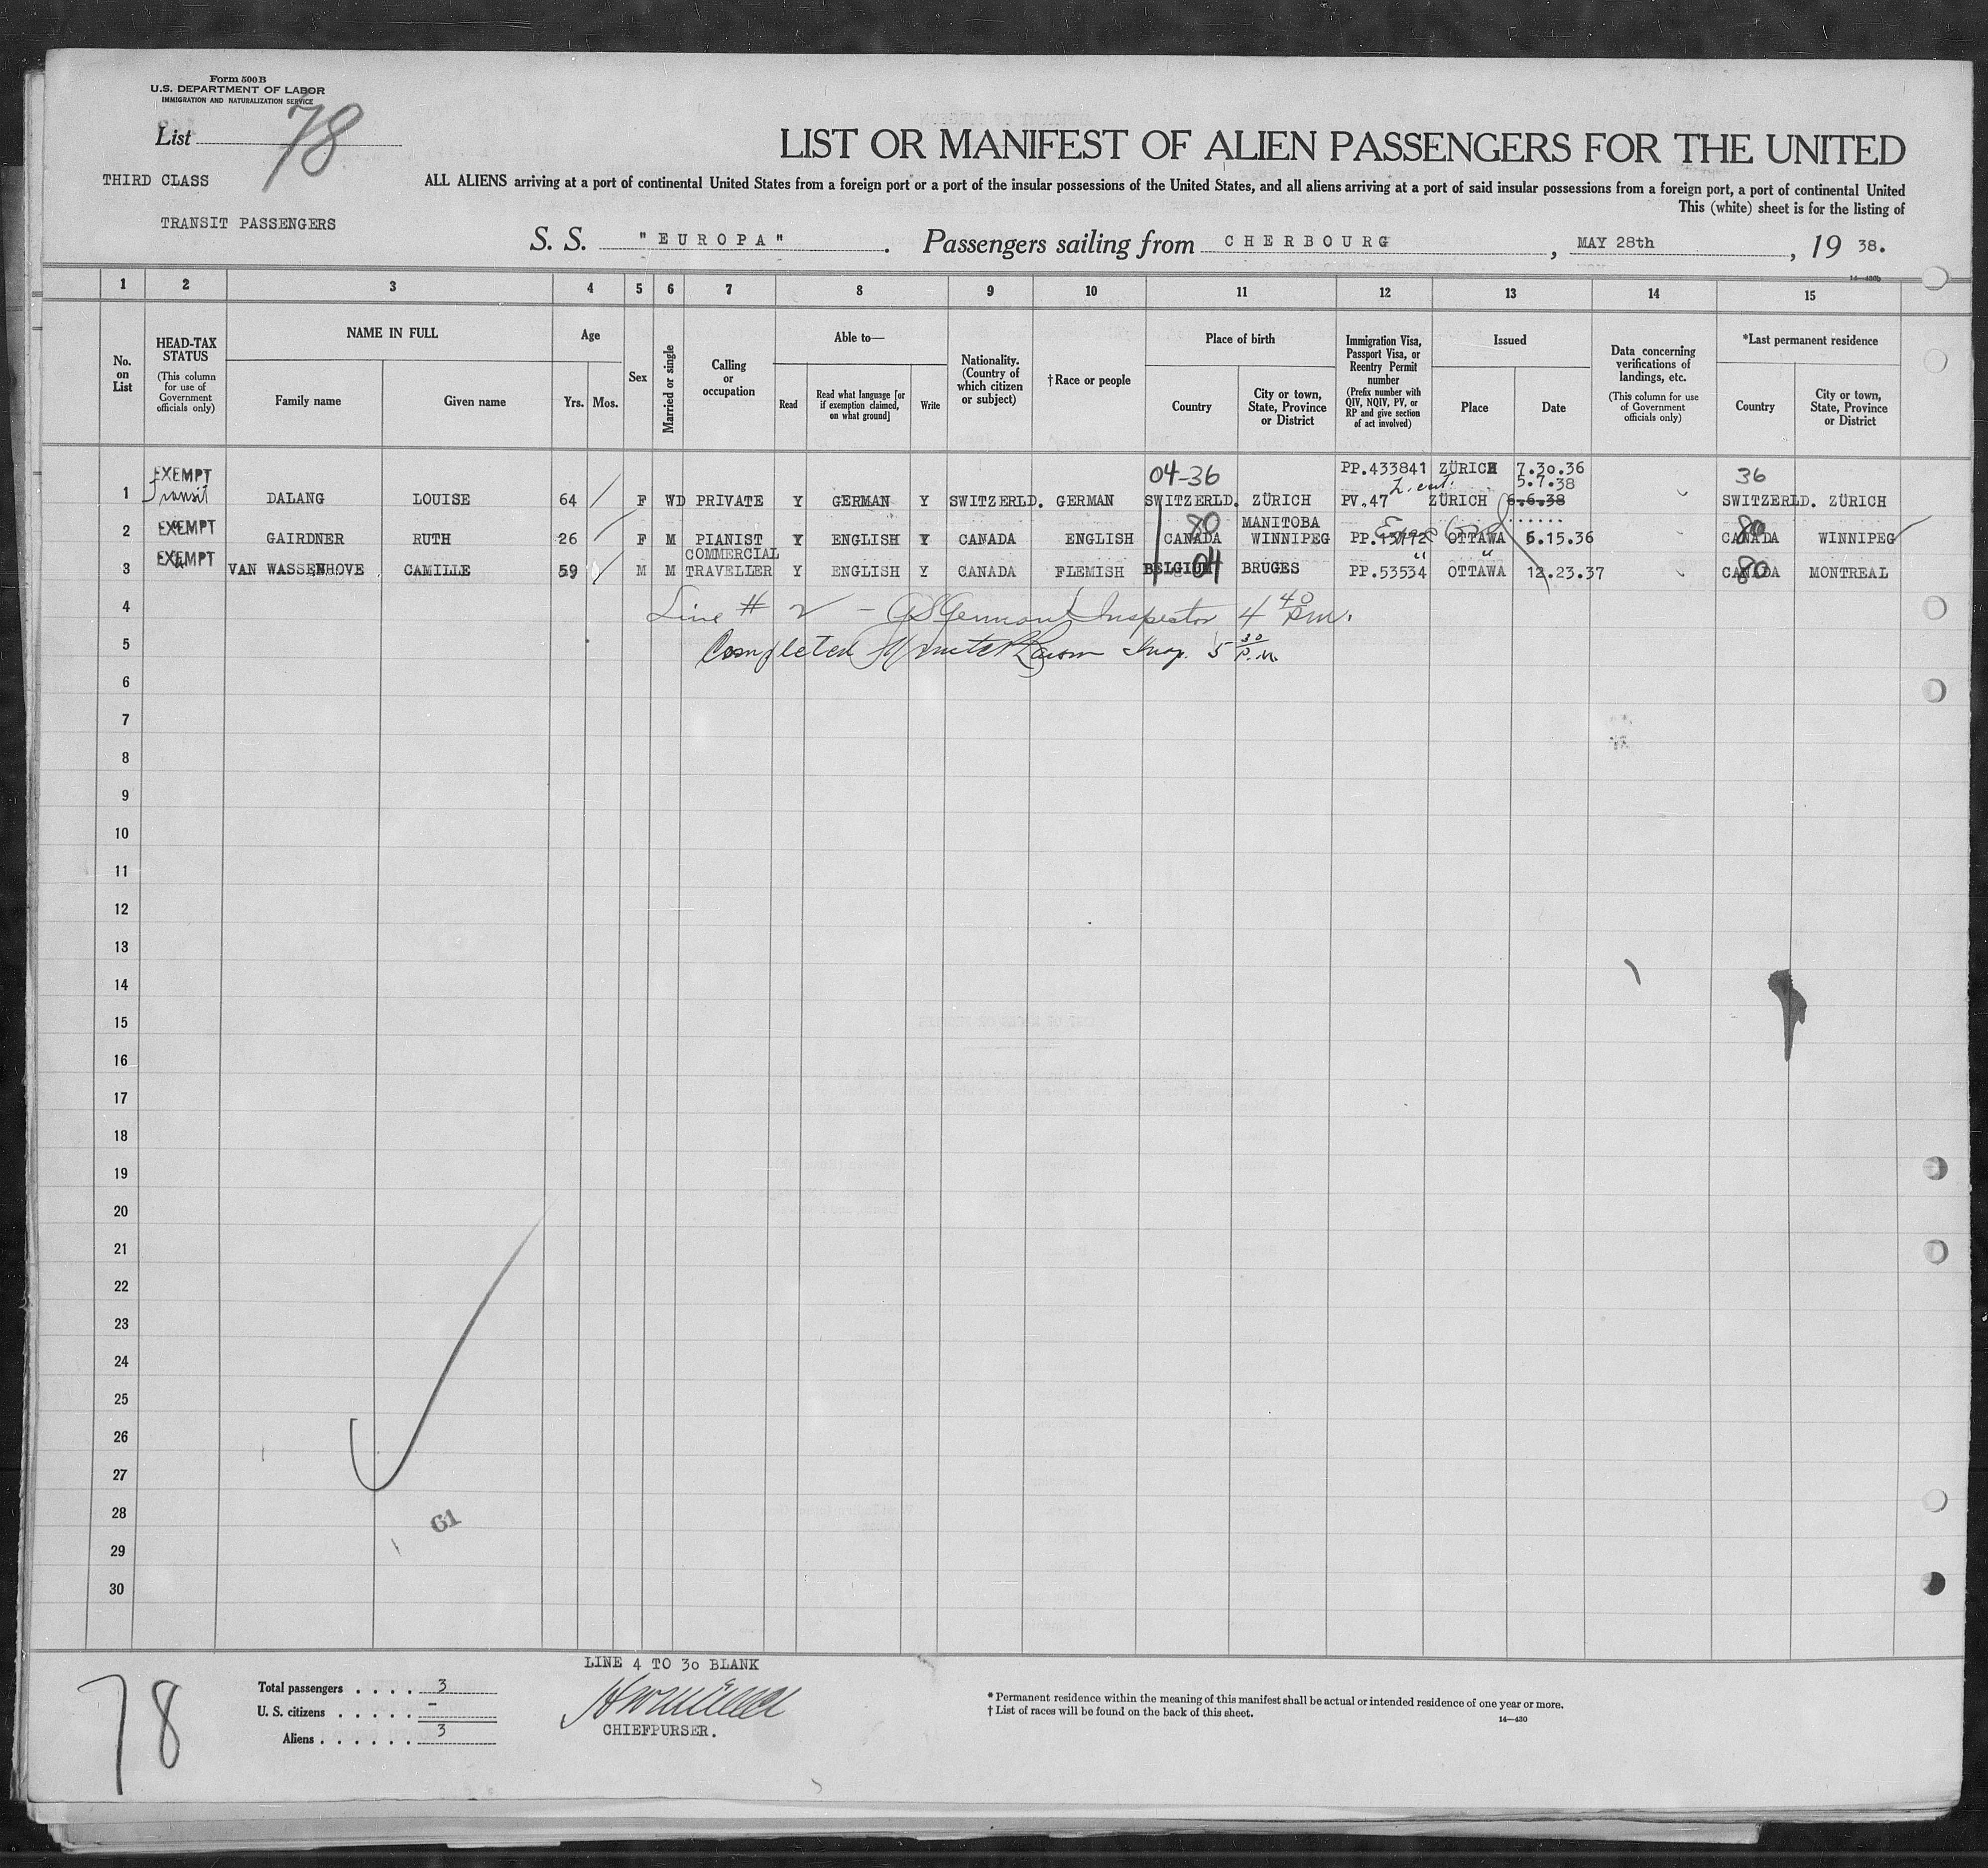 Form 500B
U.S. DEPARTMENT OF LABOR
IMMIGRATION AND NATURALIZATION SERVICE
List 78
THIRD CLASS
TRANSIT PASSENGERS
LIST OR MANIFEST OF ALIEN PASSENGERS FOR THE UNITED
ALL ALIENS arriving at a port of continental United States from a foreign port or a port of the insular possessions of the United States, and all aliens arriving at a port of said insular possessions from a foreign port, a port of continental United
This (white) sheet is for the listing of
S. S. "EUROPA". Passengers sailing from CHERBOURG, MAY 28th, 19 38.
14—430b
1 2 3 4 5 6 7 8 9 10 11 12 13 14 15
No. on List
HEAD-TAX STATUS
(This column for use of Government officials only)
NAME IN FULL
Family name
Given name
Age
Yrs. Mos.
Sex
Married or single
Calling or occupation
Able to—
Read
Read what language [or if exemption claimed, on what ground]
Write
Nationality. (Country of which citizen or subject)
†Race or people
Place of birth
Country
City or town, State, Province or District
Immigration Visa, Passport Visa, or Reentry Permit number
(Prefix number with QIV, NQIV, PV, or RP and give section of act involved)
Issued
Place
Date
Data concerning verifications of landings, etc.
(This column for use of Government officials only)
*Last permanent residence
Country
City or town, State, Province or District
EXEMPT 04-36 PP.433841 ZÜRICH 7.30.36 36
5.7.38
1 Transit DALANG LOUISE 64 F WD PRIVATE Y GERMAN Y SWITZERLD. GERMAN SWITZERLD. ZÜRICH PV.47 ZÜRICH 6.6.38 SWITZERLD. ZÜRICH
EXEMPT 80 MANITOBA 80
2 GAIRDNER RUTH 26 F M PIANIST Y ENGLISH Y CANADA ENGLISH CANADA WINNIPEG OTTAWA 6.15.36 CANADA WINNIPEG
EXEMPT COMMERCIAL 04 80
3 VAN WASSENHOVE CAMILLE 59 M M TRAVELLER Y ENGLISH Y CANADA FLEMISH BELGIUM BRUGES PP.53534 OTTAWA 12.23.37 CANADA MONTREAL
4 Line # 2 – Inspector 4 40 P.m.
5 Completed Insp. 5 30 P.M.
6
7
8
9
10
11
12
13
14
15
16
17
18
19
20
21
22
23
24
25
26
27
28
61
29
30
78
LINE 4 TO 30 BLANK
Total passengers . . . . 3
U. S. citizens . . . . . –
Aliens . . . . . . 3
CHIEFPURSER.
* Permanent residence within the meaning of this manifest shall be actual or intended residence of one year or more.
† List of races will be found on the back of this sheet.
14—430